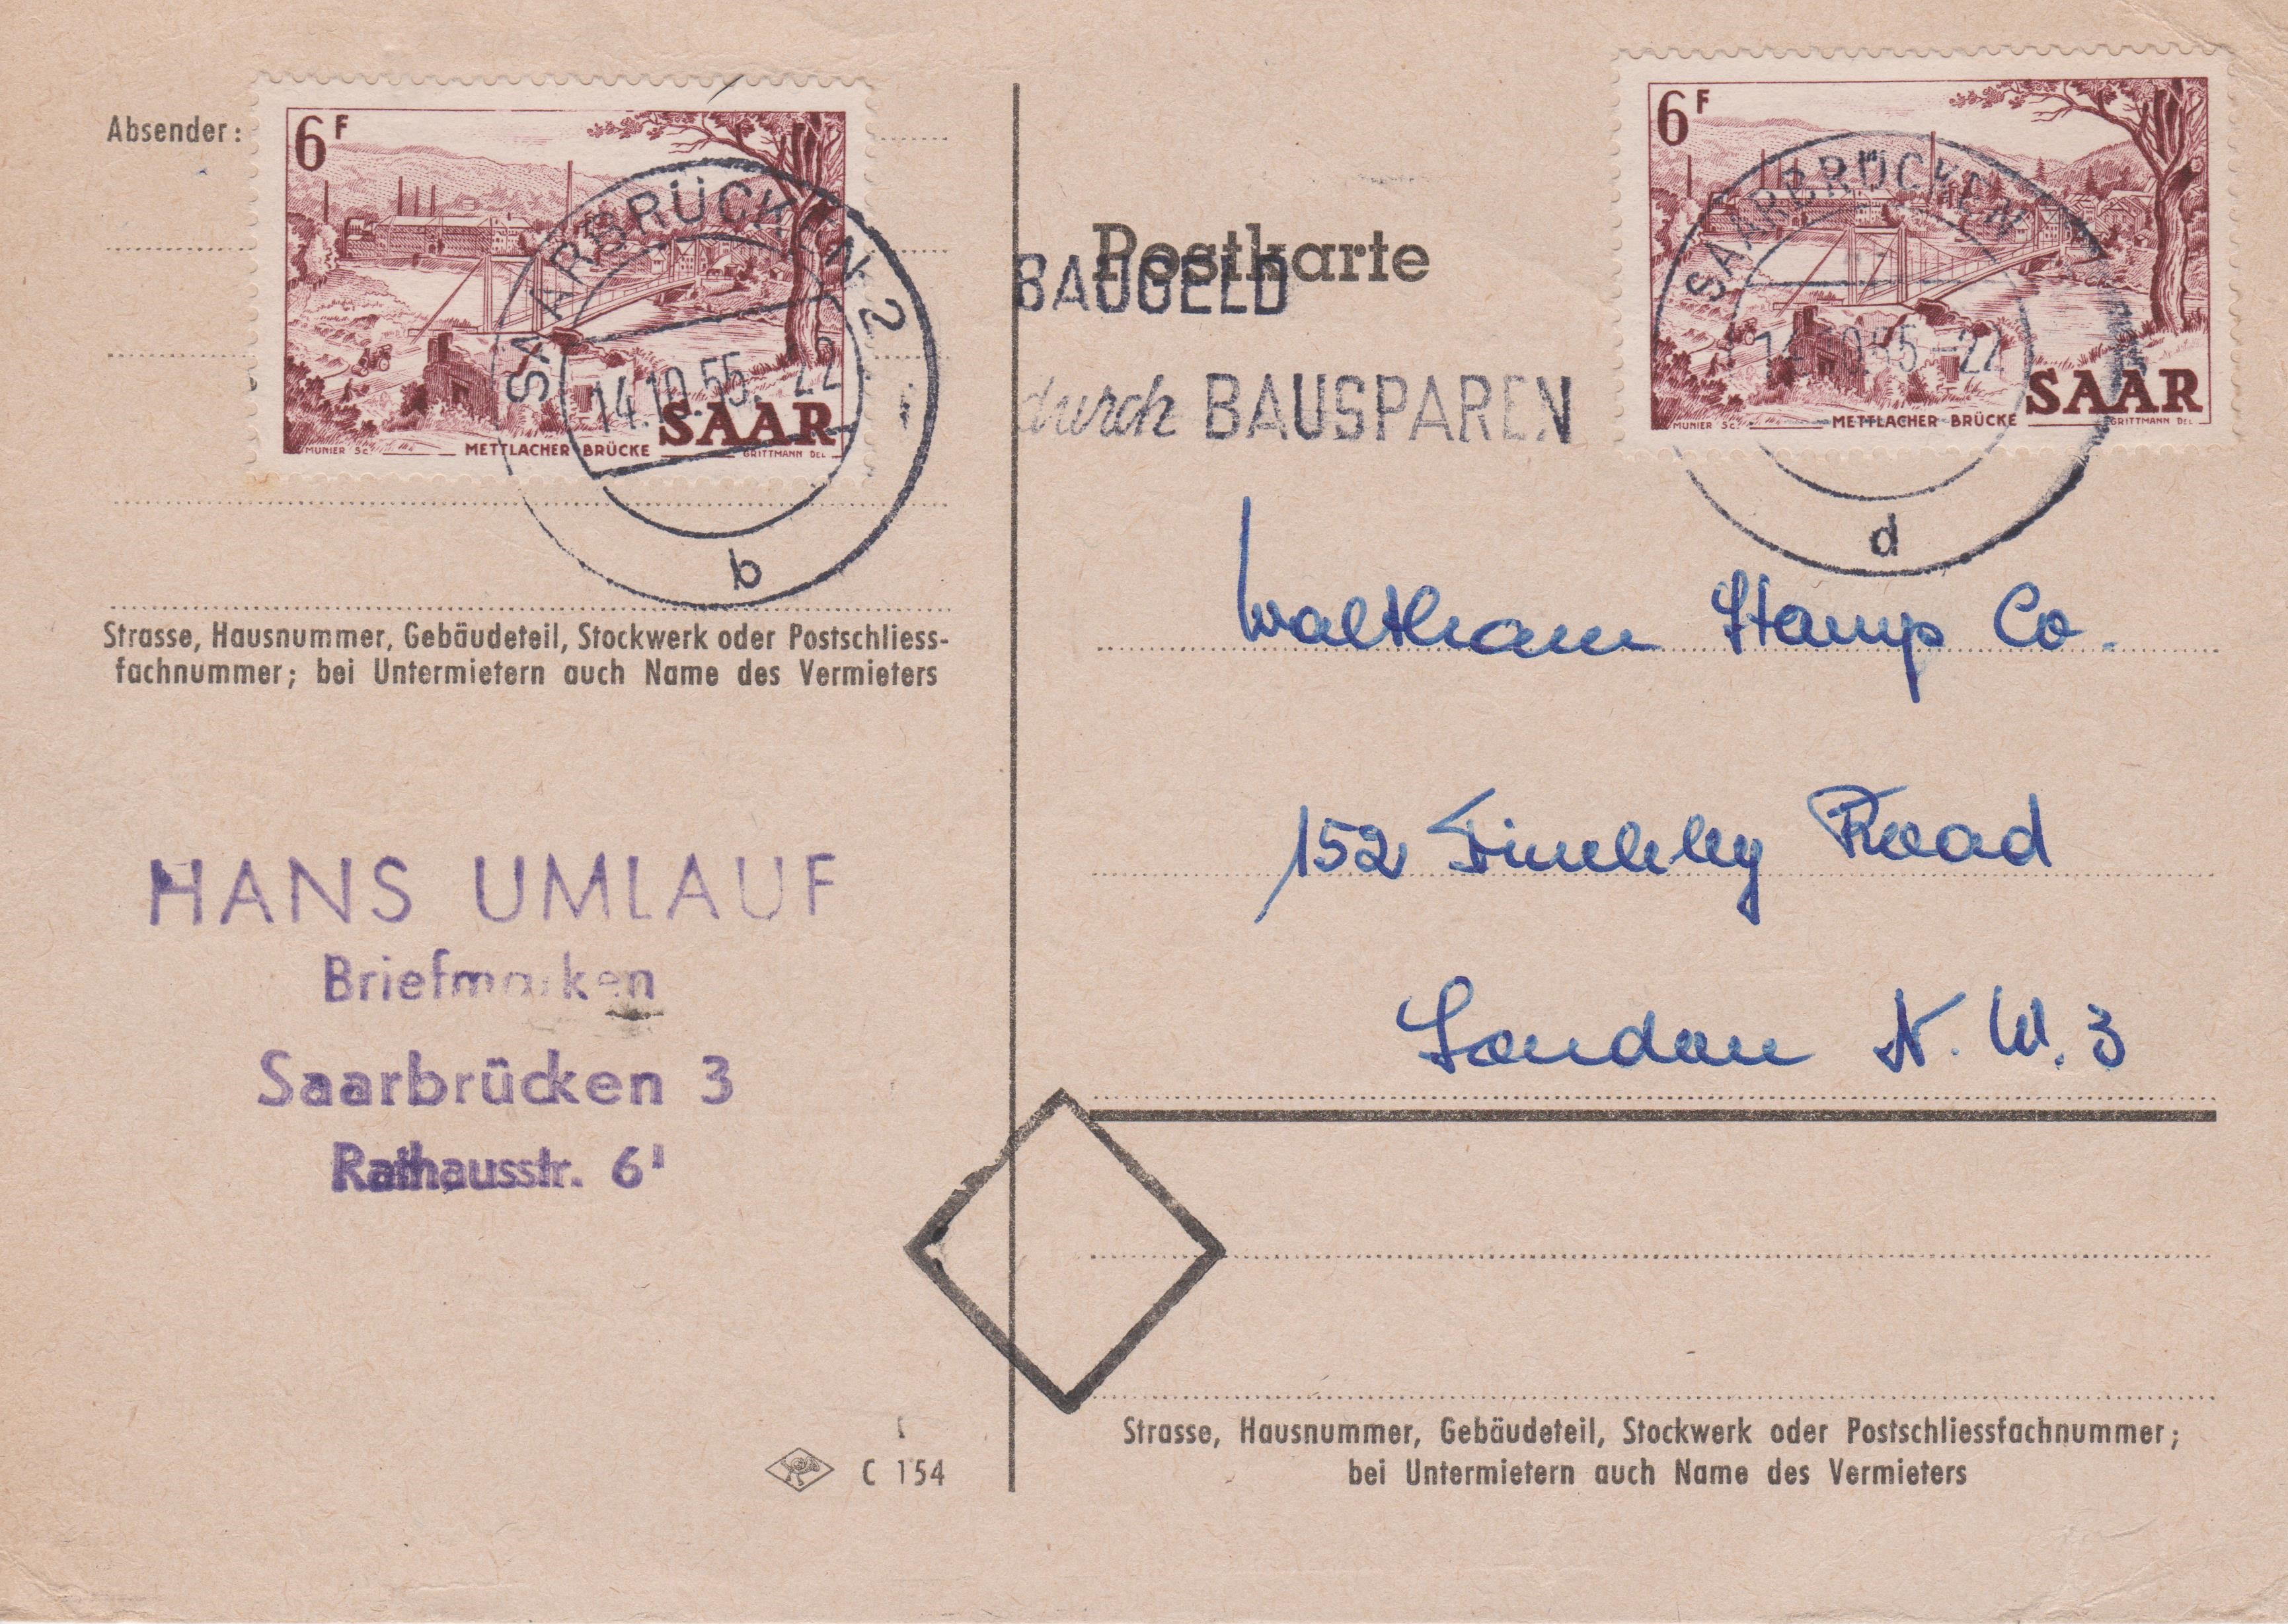 Absender:
6F
SAARBRÜCKEN 2
14.10.55. 22
b
SAAR
METTLACHER BRÜCKE
MUNIER SC.
GRITTMANN DEL
Strasse, Hausnummer, Gebäudeteil, Stockwerk oder Postschliess-
fachnummer; bei Untermietern auch Name des Vermieters
HANS UMLAUF
Briefmarken
Saarbrücken 3
Rathausstr. 6'
C 154
Postkarte
BAUGELD
durch BAUSPAREN
6F
SAARBRÜCKEN
55-22
d
SAAR
METTLACHER BRÜCKE
MUNIER SC.
GRITTMANN DEL
Waltham Stamp Co.
152 Finchley Road
London N.W.3
Strasse, Hausnummer, Gebäudeteil, Stockwerk oder Postschliessfachnummer;
bei Untermietern auch Name des Vermieters